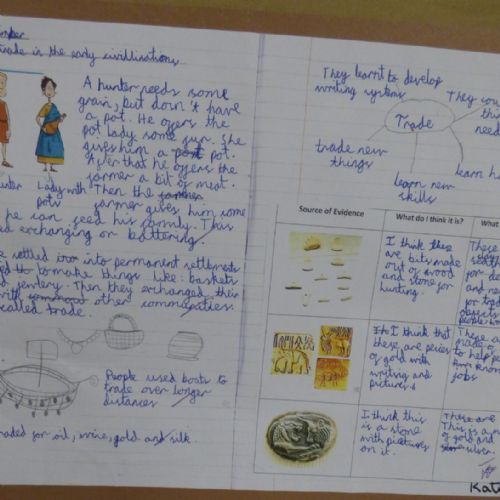 trade in the early civilisations
A hunter needs some
grain, but don't have
a pot. He offers the
pot lady some fur. She
gives him a pot pot.
After that he offers the
farmer a bit of meat.
Lady with Then the farmer
pots farmer gives him some
he can feed his family. This
exchanging or battering
settled into permanent settlements
to make things like baskets
jewlery. Then they exchanged their
with other communities.
called trade.
People used boats to
trade over longer
distances
traded for oil, wine, gold and silk.
They learnt to develop
writing systems
They
Trade
trade new
things
learn new
skills
learn
Source of Evidence
What do I think it is?
What
I think these
are bits made
out of wood
and stone for
hunting.
These
I think that
these are peices
of gold with
writing and
pictures
These a
made
to help
know
jobs
I think this
is a stone
with pictures
on it.
These are
This is a
of gold and
silver.